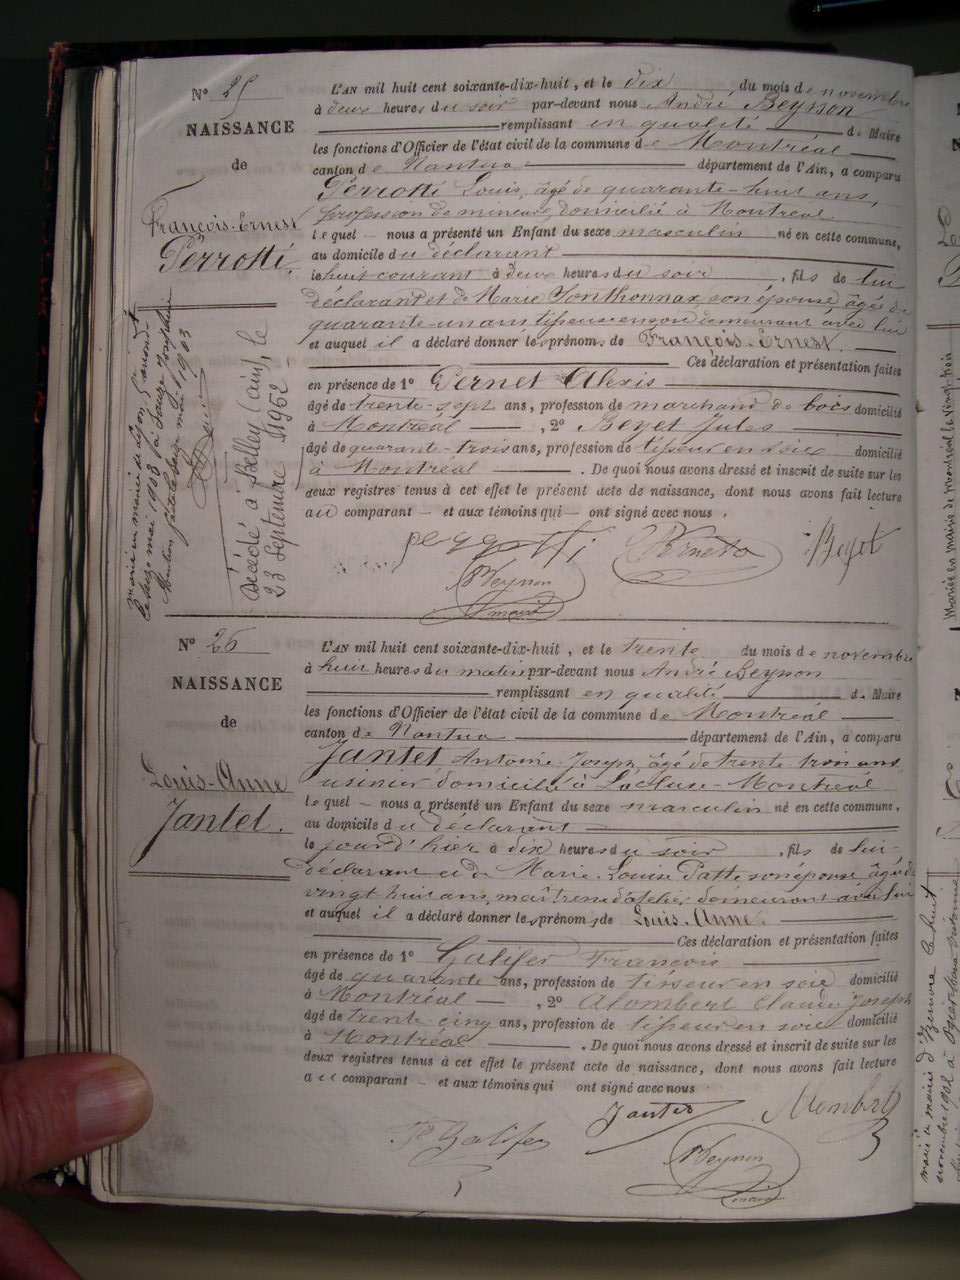 N° 25
NAISSANCE
de
François-Ernest
Perrotti.
L'AN mil huit cent soixante-dix-huit, et le dix du mois de novembre
à deux heures du soir par-devant nous André Beynon
remplissant en qualité de Maire
les fonctions d'Officier de l'état civil de la commune de Montréal
canton de Nantua département de l'Ain, a comparu
Perrotti Louis, âgé de quarante-huit ans,
profession de mineur, domicilié à Montréal
lequel nous a présenté un Enfant du sexe masculin né en cette commune,
au domicile du déclarant
le huit courant à deux heures du soir, fils de lui
déclarant et de Marie Jonthonnax, son épouse, âgée de
quarante-un ans tisseuse en soie demeurant avec lui
et auquel il a déclaré donner les prénoms de François-Ernest.
Ces déclaration et présentation faites
en présence de 1° Pernet Alexis
âgé de trente-sept ans, profession de marchand de bois domicilié
à Montréal, 2° Beyet Jules
âgé de quarante-trois ans, profession de tisseur en soie domicilié
à Montréal. De quoi nous avons dressé et inscrit de suite sur les
deux registres tenus à cet effet le présent acte de naissance, dont nous avons fait lecture
au comparant et aux témoins qui ont signé avec nous.
perrotti Beyet
Beynon
maire
marié en mairie de
le seize mai 1903 à
mai 1903
Décédé à Belley (ain), le
23 Septembre 1952
N° 26
NAISSANCE
de
Louis-Anne
Jantet.
L'AN mil huit cent soixante-dix-huit, et le trente du mois de novembre
à huit heures du matin par-devant nous André Beynon
remplissant en qualité de Maire
les fonctions d'Officier de l'état civil de la commune de Montréal
canton de Nantua département de l'Ain, a comparu
Jantet Antoine-Joseph âgé de trente trois ans
usinier domicilié à Lacluse-Montréal
lequel nous a présenté un Enfant du sexe masculin né en cette commune,
au domicile du déclarant
le jour d'hier à dix heures du soir, fils de lui-
déclarant et de Marie-Louise Patti son épouse âgée de
vingt huit ans, maîtresse d'atelier, demeurant avec lui
et auquel il a déclaré donner les prénoms de Louis-Anne.
Ces déclaration et présentation faites
en présence de 1° Galifer François
âgé de quarante ans, profession de tisseur en soie domicilié
à Montréal, 2° Alombert Claude Joseph
âgé de trente cinq ans, profession de tisseur en soie domicilié
à Montréal. De quoi nous avons dressé et inscrit de suite sur les
deux registres tenus à cet effet le présent acte de naissance, dont nous avons fait lecture
au comparant et aux témoins qui ont signé avec nous
Jantet
Galifer
Beynon
maire
Mariée en mairie de Montréal le vingt-trois
marié en mairie d' le huit
novembre 1902 à